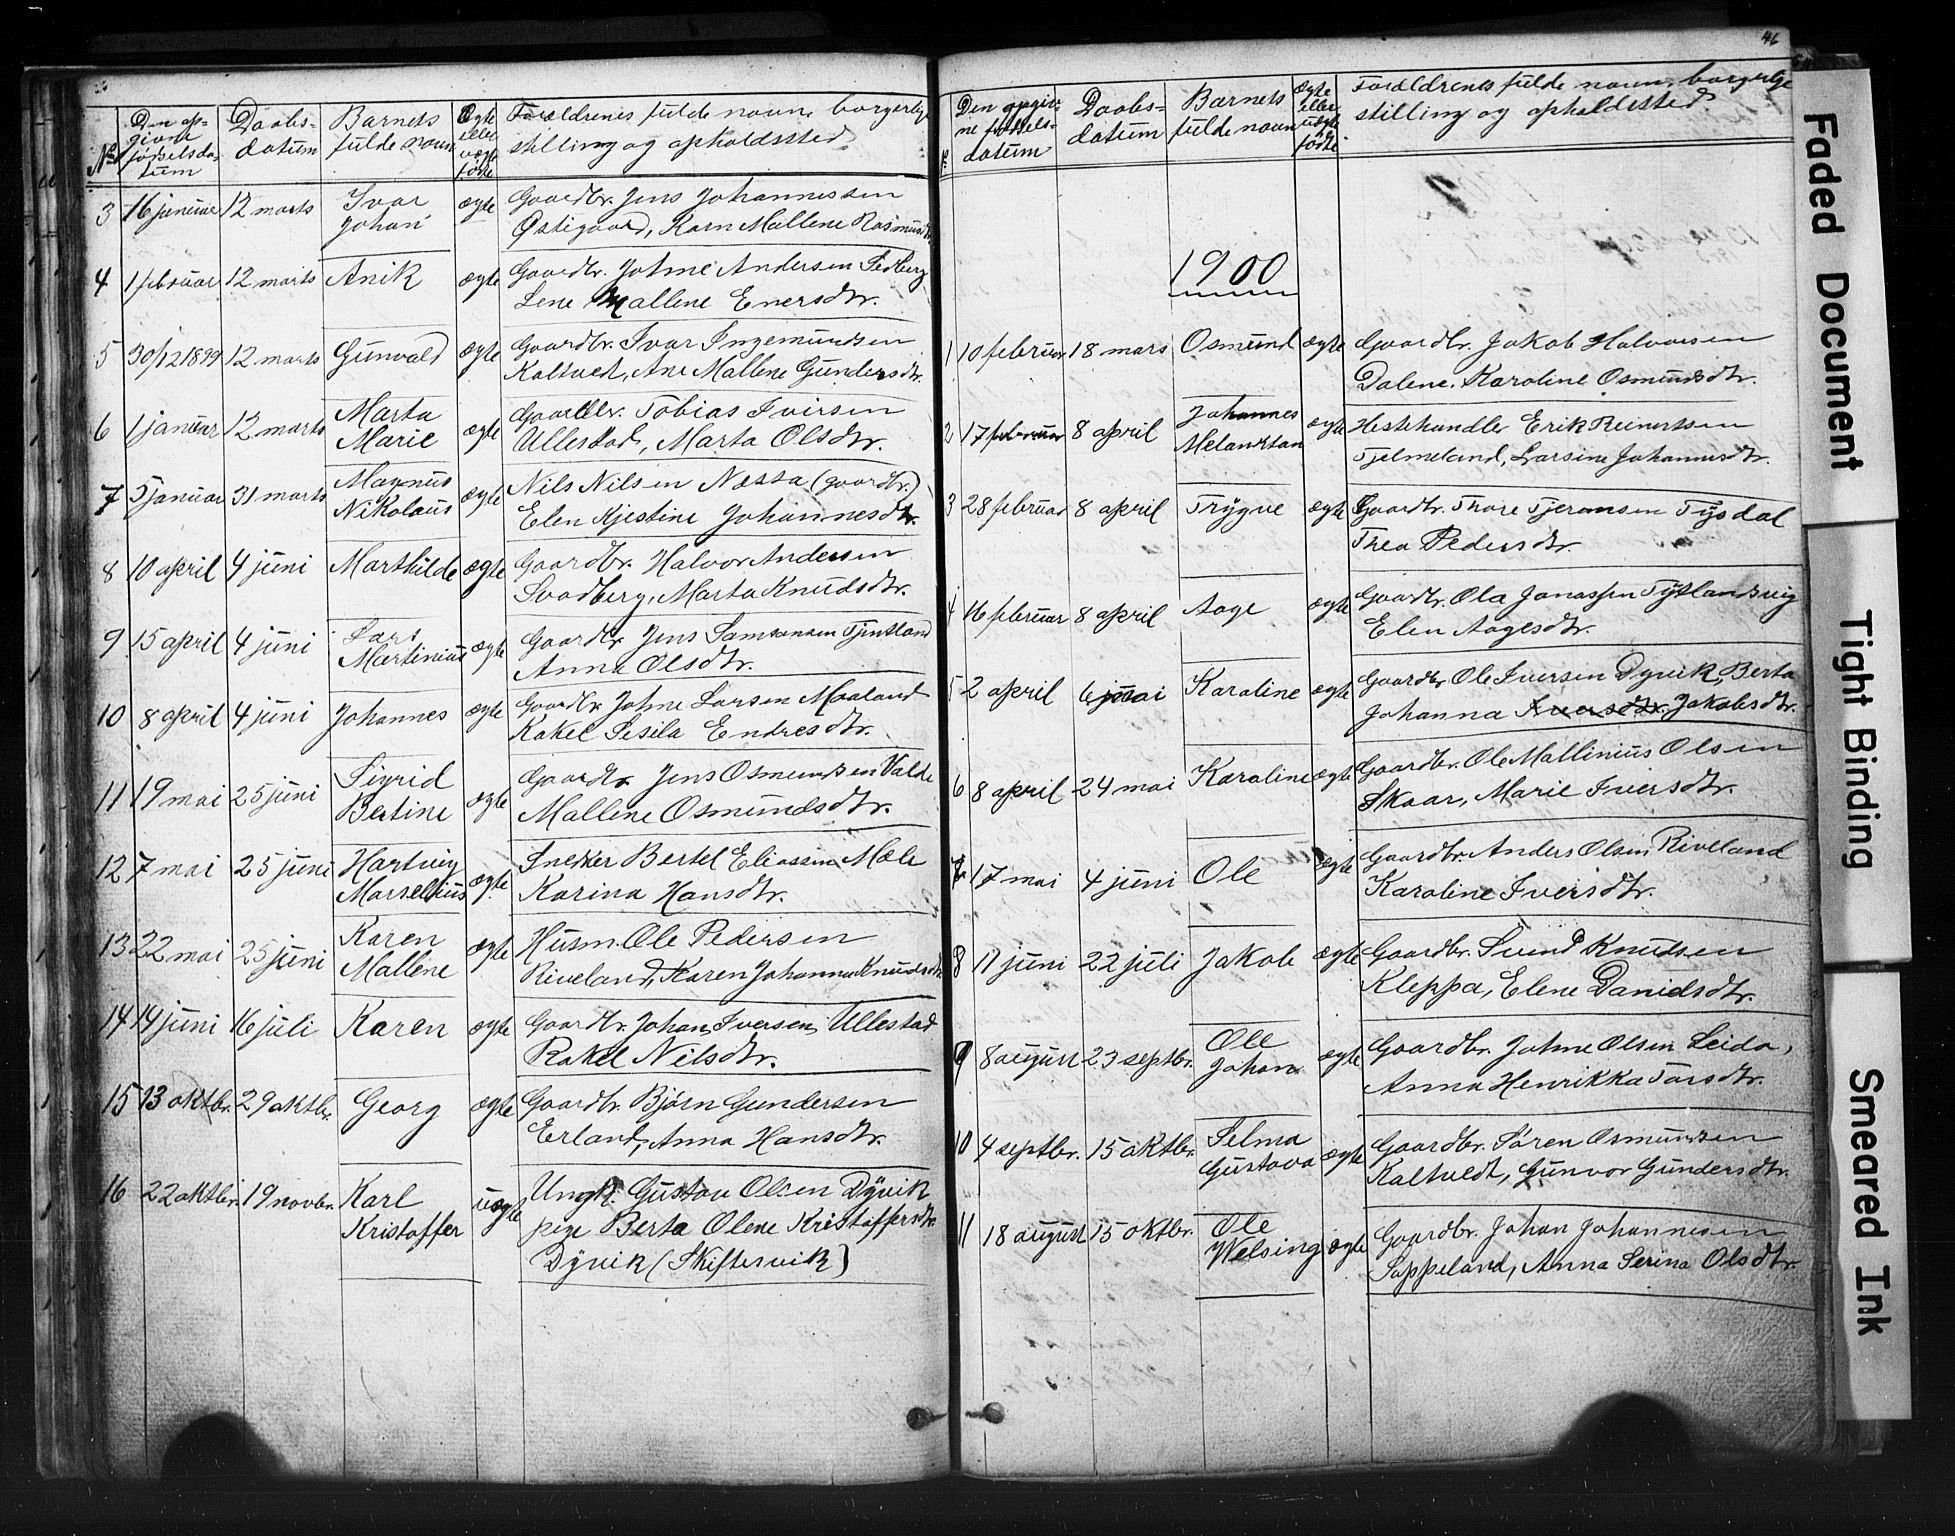 46
No
Den op-
givne
fødselsda-
tum
Daabs-
datum
Barnets
fulde navn
Ægte
eller
uægte
født
Forældrenes fulde navn, borgerlige
stilling og opholdssted
3 16 januar 12 marts Ivar Johan ægte Gaardbr. Jens Johannessen
Østigaard, Karn Mallene Rasmusdtr.
4 1 februar 12 marts Anik ægte Gaardbr. Johne Andersen Sedberg
Lene Mallene Enersdtr.
5 30/12 1899 12 marts Gunvald ægte Gaardbr. Ivar Ingemundsen
Kaltvedt, Ane Mallene Gundersdtr.
6 1 januar 12 marts Marta Marie ægte Gaardbr. Tobias Iversen
Ullestad, Marta Olsdtr.
7 5 januar 31 marts Magnus Nikolaus ægte Nils Nilsen Nessa (gaardbr.)
Elen Kjestine Johannesdtr.
8 10 april 4 juni Marthilde ægte Gaardbr. Halvor Andersen
Svadberg, Marta Knudsdtr.
9 15 april 4 juni Lars Martinius ægte Gaardbr. Jens Samsonsen Tjentland
Anna Olsdtr.
10 8 april 4 juni Johannes ægte Gaardbr. Johne Larsen Maaland
Rakel Sesila Endresdtr.
11 19 mai 25 juni Sigrid Bertine ægte Gaardbr. Jens Osmundsen Valde
Mallene Osmundsdtr.
12 7 mai 25 juni Hartvig Marselius ægte Snekker Bertel Eliassen Mæle
Karina Hansdtr.
13 22 mai 25 juni Karen Mallene ægte Husm. Ole Pedersen
Riveland, Karen Johanna Knudsdtr.
14 14 juni 16 juli Karen ægte Gaardbr. Johan Iversen Ullestad
Rakel Nilsdtr.
15 13 oktbr. 29 oktbr. Georg ægte Gaardbr. Bjørn Gundersen
Erland, Anna Hansdtr.
16 22 oktbr. 19 novbr. Karl Kristoffer uægte Ungk. Gustav Olsen Dyvik
pige Berta Olene Kristoffersdtr.
Dyvik (Skiftesvik)
Den opgiv-
ne fødsels-
datum
Daabs-
datum
Barnets
fulde navn
Ægte
eller
uægte
født
Forældrenes fulde navn, borgerlige
stilling og opholdssted
1900
1 10 februar 18 mars Osmund ægte Gaardbr. Jakob Halvorsen
Dalene. Karoline Osmundsdtr.
2 17 februar 8 april Johannes Melankton ægte Hestehandler Erik Reinertsen
Tjelmeland, Larsine Johannesdtr.
3 28 februar 8 april Trygve ægte Gaardbr. Thore Tjeransen Tysdal
Thea Pedersdtr.
4 16 februar 8 april Aage ægte Gaardbr. Ola Jonassen Tytlandsvig
Elen Aagesdtr.
5 2 april 6 mai Karoline ægte Gaardbr. Ole Iversen Dyvik, Berta
Johanna Iversdtr. Jakobsdtr.
6 8 april 24 mai Karoline ægte Gaardbr. Ole Mallinius Olsen
Skaar, Marie Iversdtr.
7 17 mai 4 juni Ole ægte Gaardbr. Anders Olsen Riveland
Karoline Iversdtr.
8 17 juni 22 juli Jakob ægte Gaardbr. Svend Knudsen
Kleppa, Elene Danielsdtr.
9 8 august 23 septbr. Ole Johan ægte Gaardbr. Johne Olsen Leida,
Anna Henrikka Tarsdtr.
10 4 septbr. 15 oktbr. Selma Gustava ægte Gaardbr. Søren Osmundsen
Kaltvedt, Gunvor Gundersdtr.
11 18 august 15 oktbr. Ole Welsing ægte Gaardbr. Johan Johannesen
Sappeland, Anna Serina Olsdtr.
Faded Document
Tight Binding
Smeared Ink